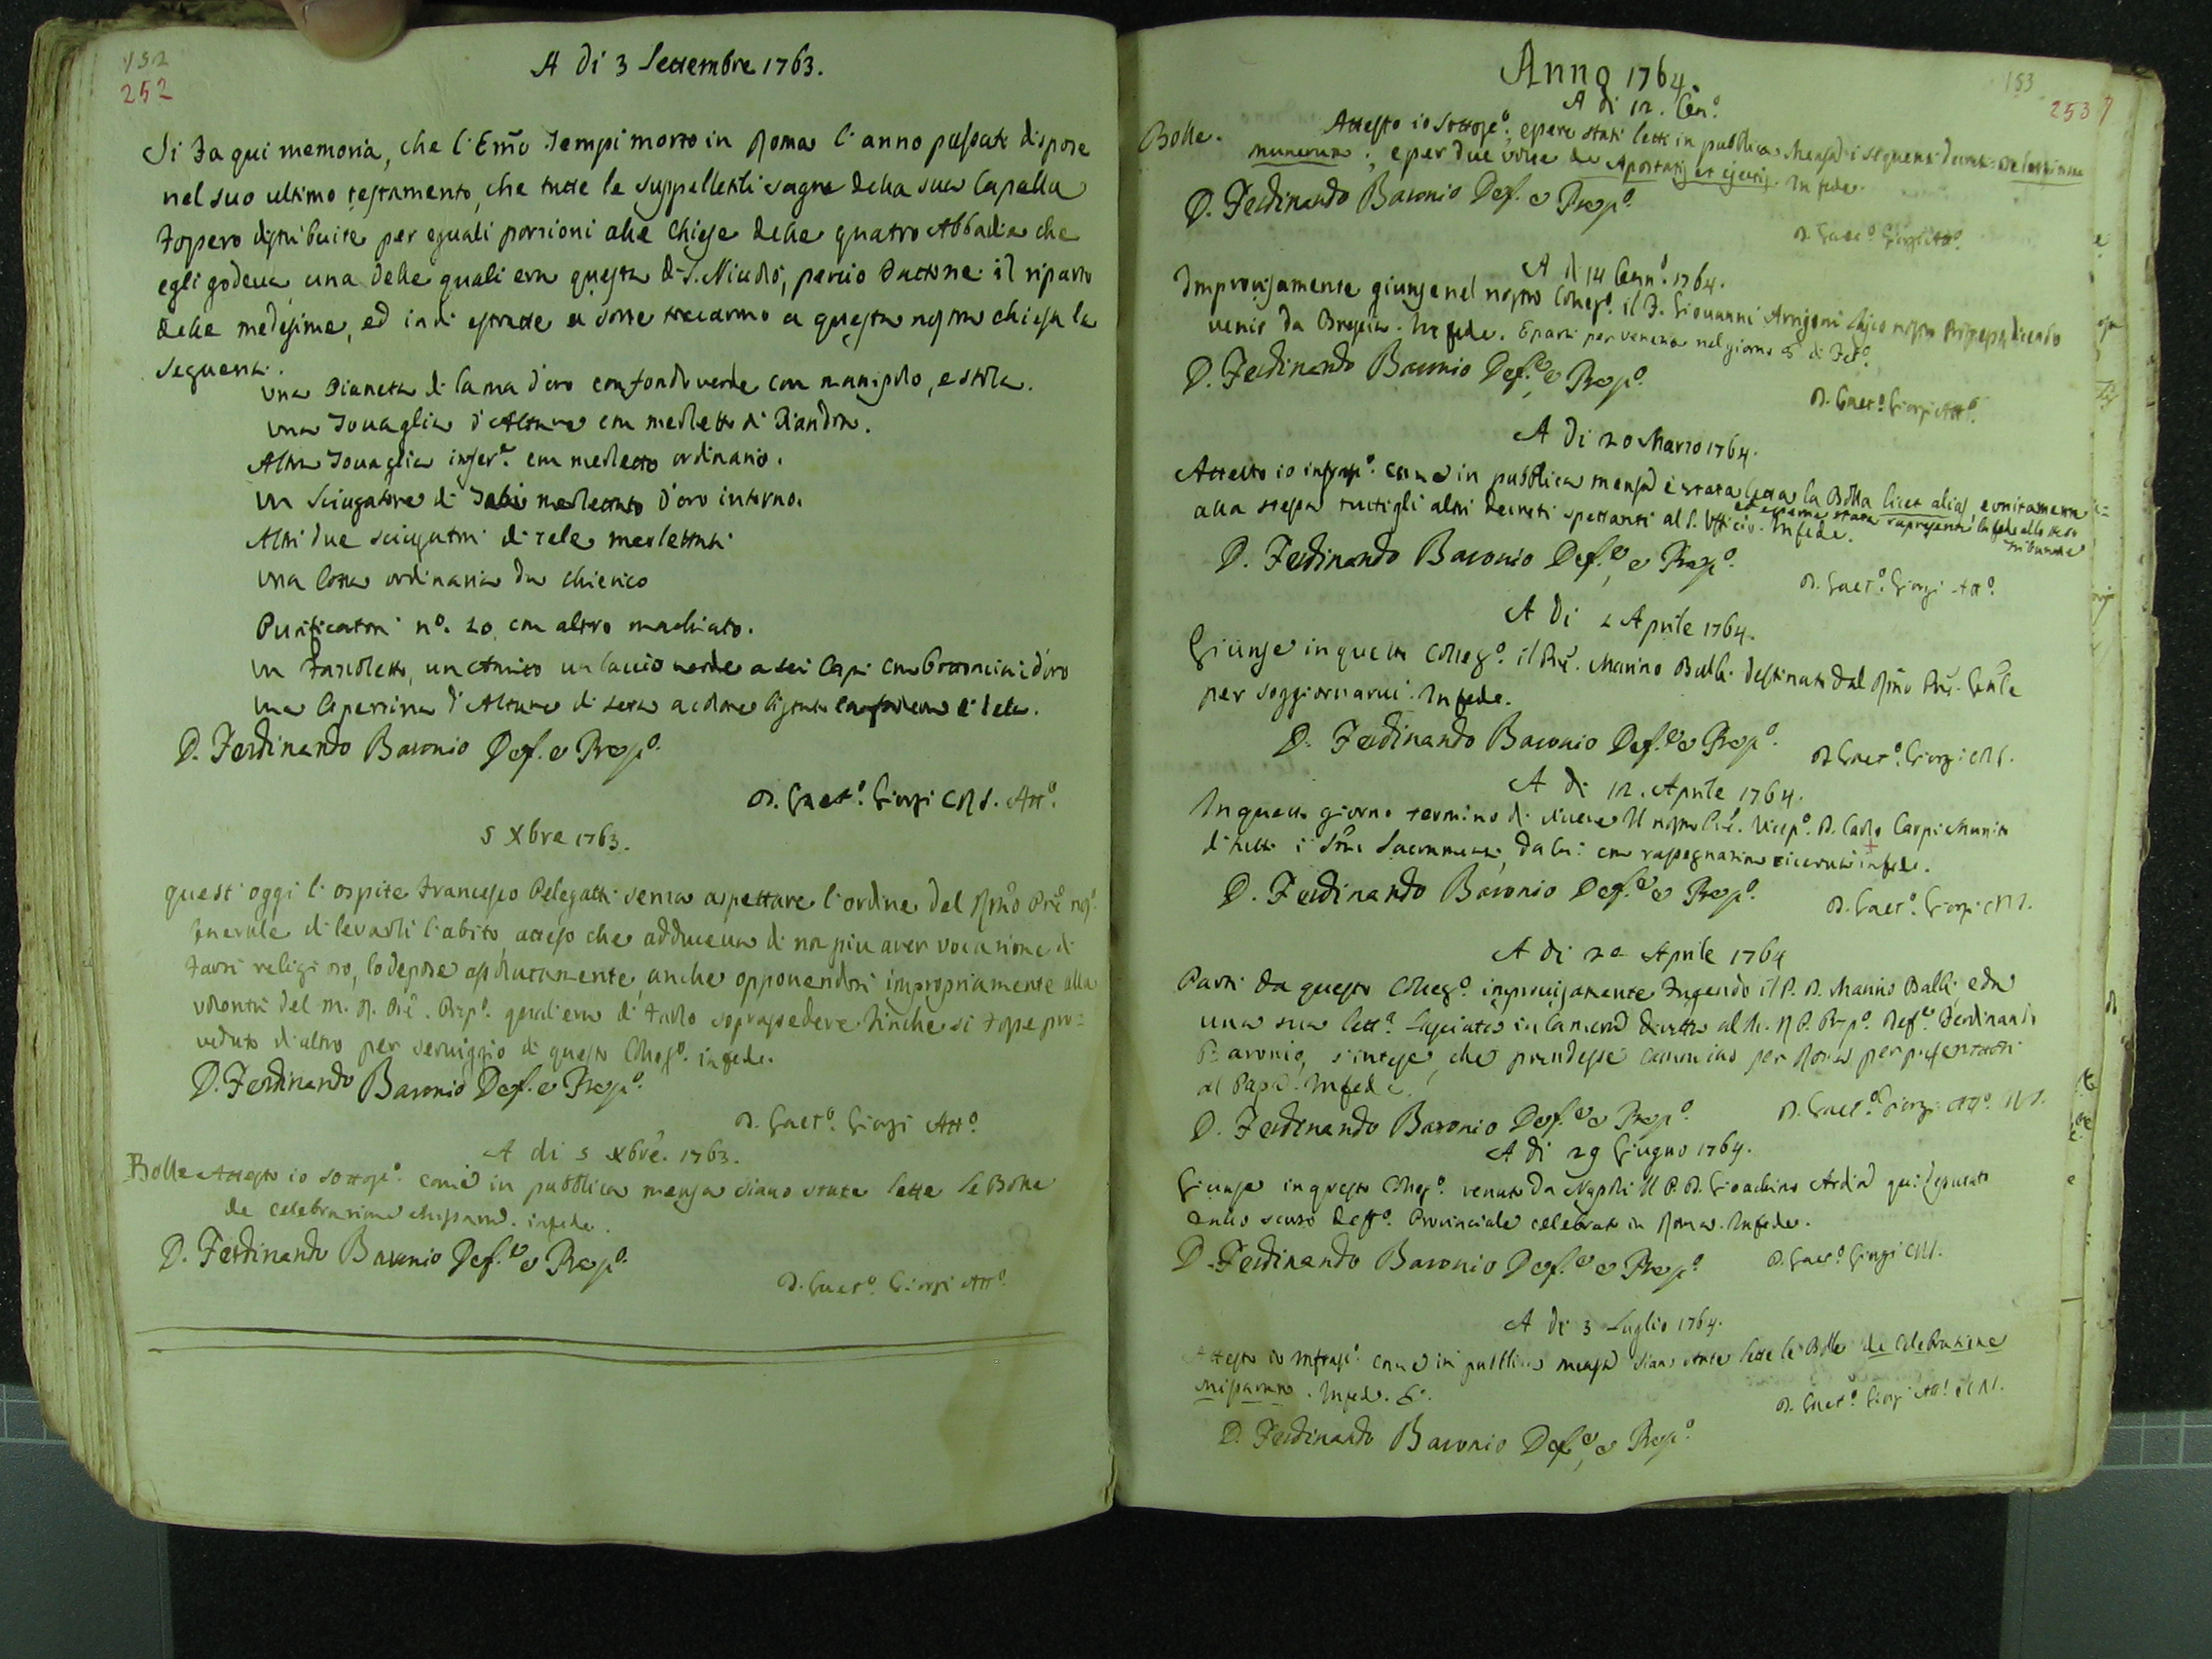 152
252
A di 3 Settembre 1763.
Si fa qui memoria, che l'Emo Tempi morto in Roma l'anno passato dispose
nel suo ultimo testamento, che tutte le suppellettili sagre della sua Capella
fossero distribuite per eguali porzioni alle Chiese delle quatro Abbadie che
egli godeva una delle quali era questa di S. Nicolò, perciò fattone il riparto
delle medesime, ed indi estratte a sorte toccarono a questa nostra chiesa le
seguenti.
Una Pianeta di lama d'oro con fondo verde con manipolo, e stola.
Una Tovaglia d'Altare con merletto di Fiandra.
Altra Tovaglia infer.e con merletto ordinario.
Un Sciugatore di merlettato d'oro intorno.
Altri due sciugatori di tela merlettati
Una Cotta ordinaria da chierico
Purificatori nº. 20 con altro machiato.
Un Fazoletto, un Amito un laccio verde a sei Capi con d'oro
Una Copertina d'Altare di seta a colore di tela.
D. Ferdinando Baronio Def. e Prepº.
D. Gaetº. Giorgi CRS. Attº.
5 Xbre 1763.
Quest'oggi l'ospite Francesco Pelegatti senza aspettare l'ordine del Rmo Pre nrº.
Generale di levarli l'abito, atteso che adduceva di non piu aver vocazione di
farsi religioso, lo depose assolutamente, anche opponendosi impropriamente alla
volontà del M. R. Pre. Prepº. qual'era di farlo soprassedere finche si fosse pro=
veduto d'altro per serviggio di questo Collegº. in fede.
D. Ferdinando Baronio Def. e Prepº.
D. Gaetº. Giorgi Attº.
A di 5 Xbre. 1763.
Bolle Attesto io sottosº. come in pubblica mensa siano state lette le Bolle
de celebratione Missarum. in fede.
D. Ferdinando Baronio Def.e e Prepº.
D. Gaetº. Giorgi Attº.
183
253
Anno 1764.
A di 12. Genº.
Bolle. Attesto io sottosº. essere stati letti in pubblica Mensa i seguenti decreti
munerum; e per due volte de Apostatis et ejectis. In fede.
D. Ferdinando Baronio Def. e Prepº.
D. Gaetº. Giorgi Attº.
A di 14 Gennº. 1764.
Improvisamente giunse nel nostro Collegº. il F. Giovanni Arrigoni laico nostro dicendo
venir da Brescia. In fede. E partì per Venezia nel giorno 5 di Febº.
D. Ferdinando Baronio Def.e e Prepº.
D. Gaetº. Giorgi Attº.
A di 20 Marzo 1764.
Attesto io infrasº. come in pubblica mensa è stata letta la Bolla licet alias, e unitamente
alla stessa tutti gli altri decreti spettanti al S. Ufficio. In fede.
ed esserne stata la fede allo stesso
Tribunale
D. Ferdinando Baronio Def.e, e Prepº.
D. Gaetº. Giorgi Attº.
A di 2 Aprile 1764.
Giunse in questo Collegº. il Pre. Marino Balbi destinato dal Rmo Pre. Gnle
per soggiornarvi. In fede.
D. Ferdinando Baronio Def.e e Prepº.
D. Gaetº. Giorgi CRS.
A di 12. Aprile 1764.
In questo giorno terminò di vivere il nostro Pre. Vicepº. D. Carlo Carpi munito
di tutti i Smi Sacramenti, da lui con rassegnazione ricevuti in fede.
D. Ferdinando Baronio Def.e e Prepº.
D. Gaetº. Giorgi CRS.
A di 22 Aprile 1764
Partì da questo Collegº. improvisamente fugendo il P. D. Marino Balbi, e da
una sua lettª. lasciata in camera diretta al M. R. P. Prpº. Defe. Ferdinando
Baronio, s'intese, che prendesse camino per Roma per presentarsi
al Papa. In fede.
D. Ferdinando Baronio Def.e e Prepº.
D. Gaetº. Giorgi Attº. CRS.
A di 29 Giugno 1764.
Giunse in questo Collegº. venuto da Napoli il P. D. Gioachino Ardia qui deputato
dallo scorso Deffº. Provinciale celebrato in Roma. In fede.
D. Ferdinando Baronio Def.e e Prepº.
D. Gaetº. Giorgi CRS.
A di 3 Luglio 1764.
Attesto io infrasº. come in pubblica mensa siano state lette le Bolle de Celebratione
Missarum. In fede. &.
D. Gaetº. Giorgi Attº. CRS.
D. Ferdinando Baronio Def.e, e Prepº.